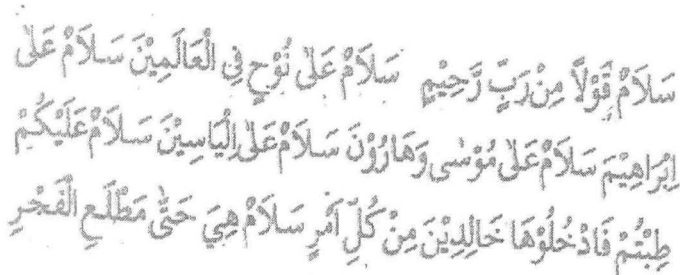 سَلَامٌ قَوْلًا مِنْ رَبٍّ رَّحِيْمٍ سَلَامٌ عَلٰى نُوْحٍ فِى الْعَالَمِيْنَ سَلَامٌ عَلٰى
اِبْرَاهِيْمَ سَلَامٌ عَلٰى مُوْسٰى وَهَارُوْنَ سَلَامٌ عَلٰى اِلْيَاسِيْنَ سَلَامٌ عَلَيْكُمْ
طِبْتُمْ فَادْخُلُوْهَا خَالِدِيْنَ مِنْ كُلِّ اَمْرٍ سَلَامٌ هِيَ حَتّٰى مَطْلَعِ الْفَجْرِ